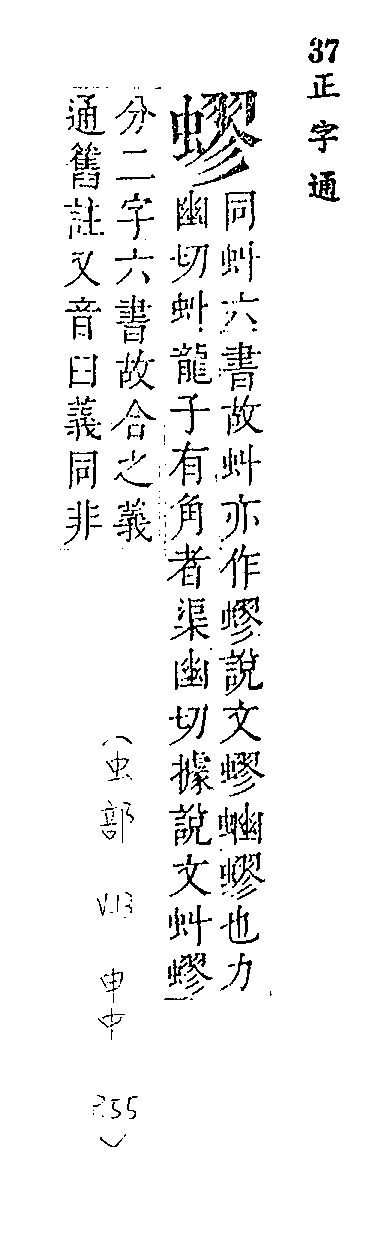 37正字通
蟉
同虯六書故虯亦作蟉說文蟉蟉也力
幽切虯龍子有角者渠幽切據說文虯蟉
分二字六書故合之義
通舊註又音臼義同非
(虫部 V.13 申中 P.55)